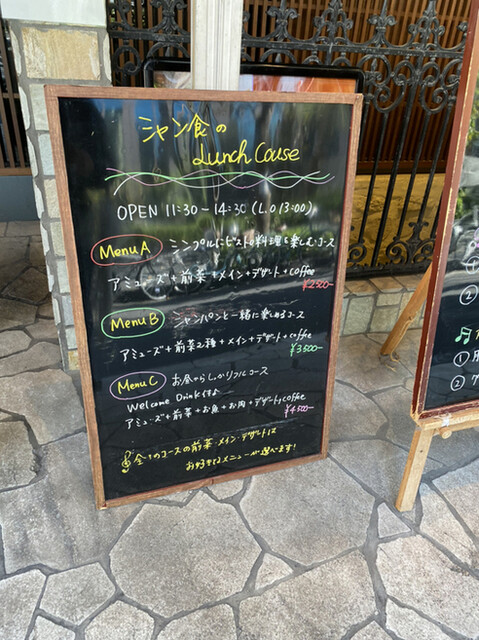 シャン食の
Lunch Couse
OPEN 11:30-14:30 (L.O 13:00)
Menu A シンプルにビストロ料理を楽しむコース
アミューズ+前菜+メイン+デザート+coffee
¥2,500-
Menu B シャンパンと一緒に楽しめるコース
アミューズ+前菜2種+メイン+デザート+coffee
¥3,500-
Menu C お昼からしっかりフルコース
Welcome Drink付き
アミューズ+前菜+お魚+お肉+デザート+coffee
¥4,500-
全てのコースの前菜・メイン・デザートは
お好きなメニューが選べます!
①
②
①
②